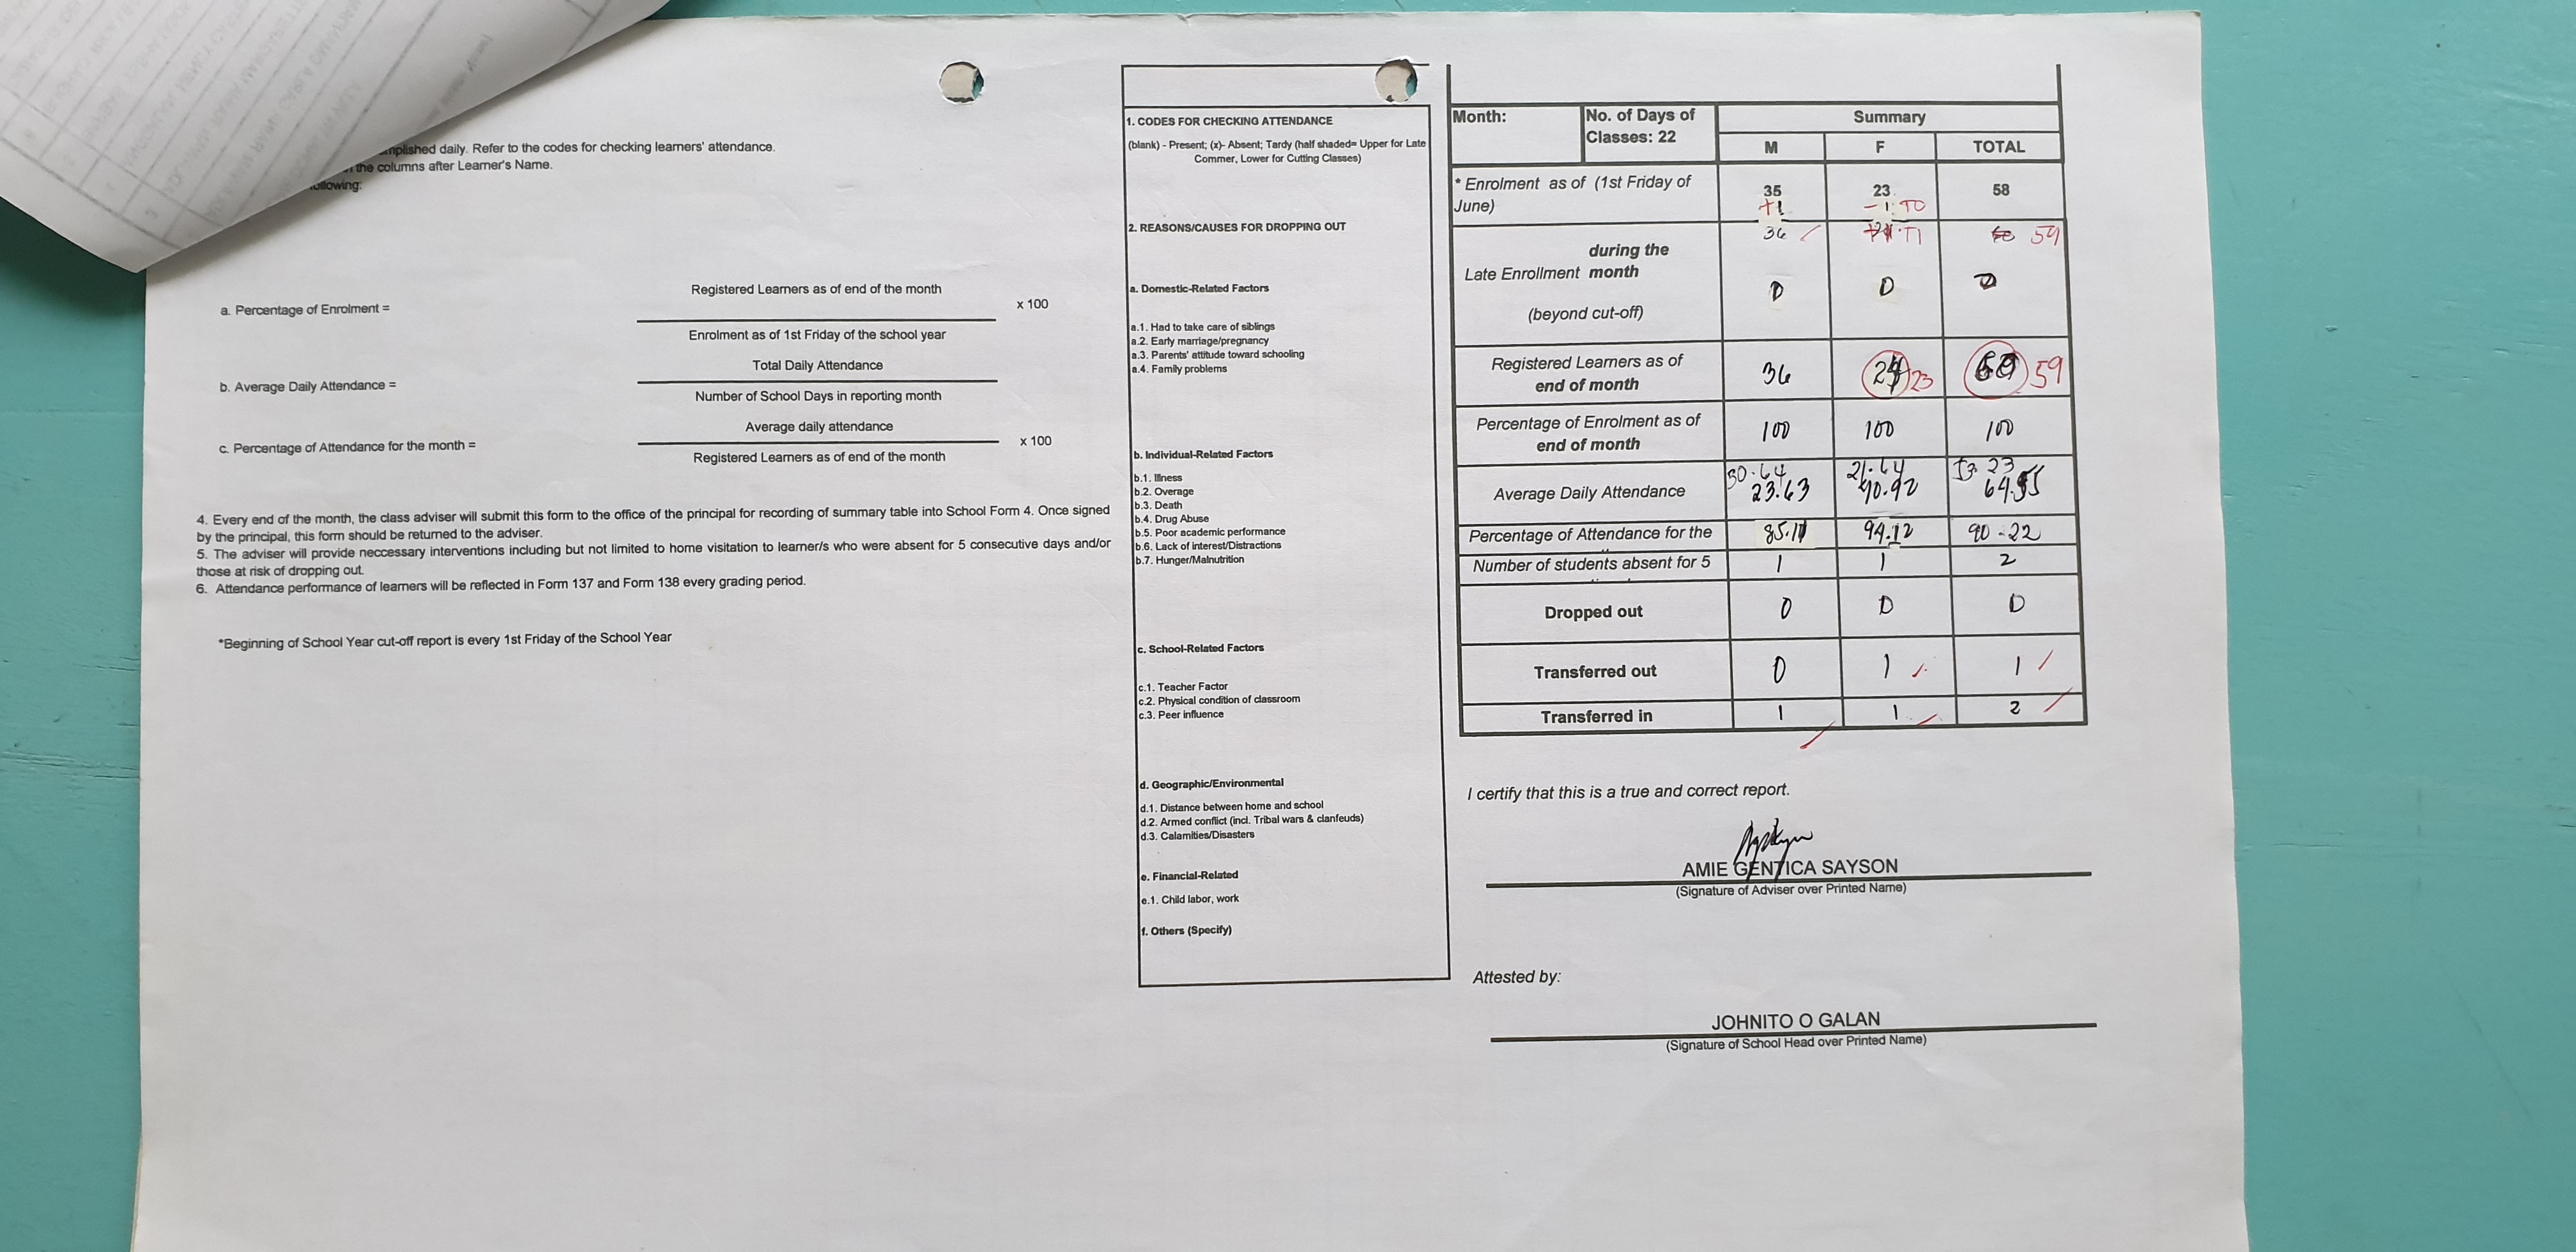 mplished daily. Refer to the codes for checking learners' attendance.
the columns after Learner's Name.
ollowing:
a. Percentage of Enrolment =
Registered Learners as of end of the month
x 100
Enrolment as of 1st Friday of the school year
b. Average Daily Attendance =
Total Daily Attendance
Number of School Days in reporting month
c. Percentage of Attendance for the month =
Average daily attendance
x 100
Registered Learners as of end of the month
4. Every end of the month, the class adviser will submit this form to the office of the principal for recording of summary table into School Form 4. Once signed
by the principal, this form should be returned to the adviser.
5. The adviser will provide neccessary interventions including but not limited to home visitation to learner/s who were absent for 5 consecutive days and/or
those at risk of dropping out.
6. Attendance performance of learners will be reflected in Form 137 and Form 138 every grading period.
*Beginning of School Year cut-off report is every 1st Friday of the School Year
1. CODES FOR CHECKING ATTENDANCE
(blank) - Present; (x)- Absent; Tardy (half shaded= Upper for Late
Commer, Lower for Cutting Classes)
2. REASONS/CAUSES FOR DROPPING OUT
a. Domestic-Related Factors
a.1. Had to take care of siblings
a.2. Early marriage/pregnancy
a.3. Parents' attitude toward schooling
a.4. Family problems
b. Individual-Related Factors
b.1. Illness
b.2. Overage
b.3. Death
b.4. Drug Abuse
b.5. Poor academic performance
b.6. Lack of interest/Distractions
b.7. Hunger/Malnutrition
c. School-Related Factors
c.1. Teacher Factor
c.2. Physical condition of classroom
c.3. Peer influence
d. Geographic/Environmental
d.1. Distance between home and school
d.2. Armed conflict (incl. Tribal wars & clanfeuds)
d.3. Calamities/Disasters
e. Financial-Related
e.1. Child labor, work
f. Others (Specify)
Month:
No. of Days of
Classes: 22
Summary
M F TOTAL
* Enrolment as of (1st Friday of
June)
35 23 58
+1 -1 TO
36 TI 59
Late Enrollment during the
month
(beyond cut-off)
0 0 0
Registered Learners as of
end of month
36 23 59
Percentage of Enrolment as of
end of month
100 100 100
Average Daily Attendance
30.64 21.64
23.63
Percentage of Attendance for the
85.11 94.12 90.22
Number of students absent for 5
1 1 2
Dropped out 0 0 0
Transferred out 0 1 1
Transferred in 1 1 2
I certify that this is a true and correct report.
AMIE GENTICA SAYSON
(Signature of Adviser over Printed Name)
Attested by:
JOHNITO O GALAN
(Signature of School Head over Printed Name)